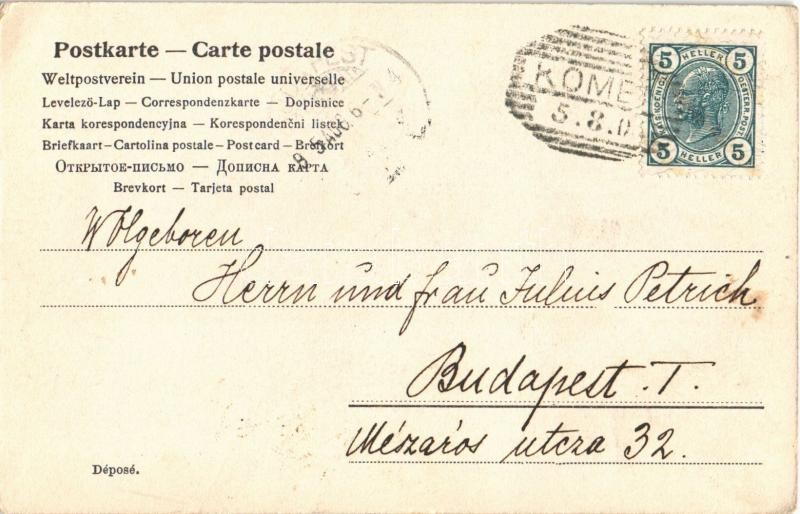 Postkarte — Carte postale
Weltpostverein — Union postale universelle
Levelező-Lap — Correspondenzkarte — Dopisnice
Karta korespondencyjna — Korespondenční listek
Briefkaart — Cartolina postale — Postcard — Brefkort
Открытое-письмо — Дописна карта
Brevkort — Tarjeta postal
KOME
5.8.0
5 HELLER 5
5 HELLER 5
Wolgeboren
Herrn und Frau Julius Petrich
Budapest. I.
Mészáros utcza 32.
Déposé.